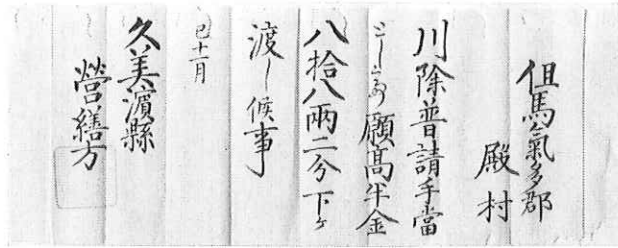 但馬氣多郡
殿村
川除普請手當
として願高半金
八拾八兩二分下ケ
渡し候事
巳十一月
久美濱縣
營繕方